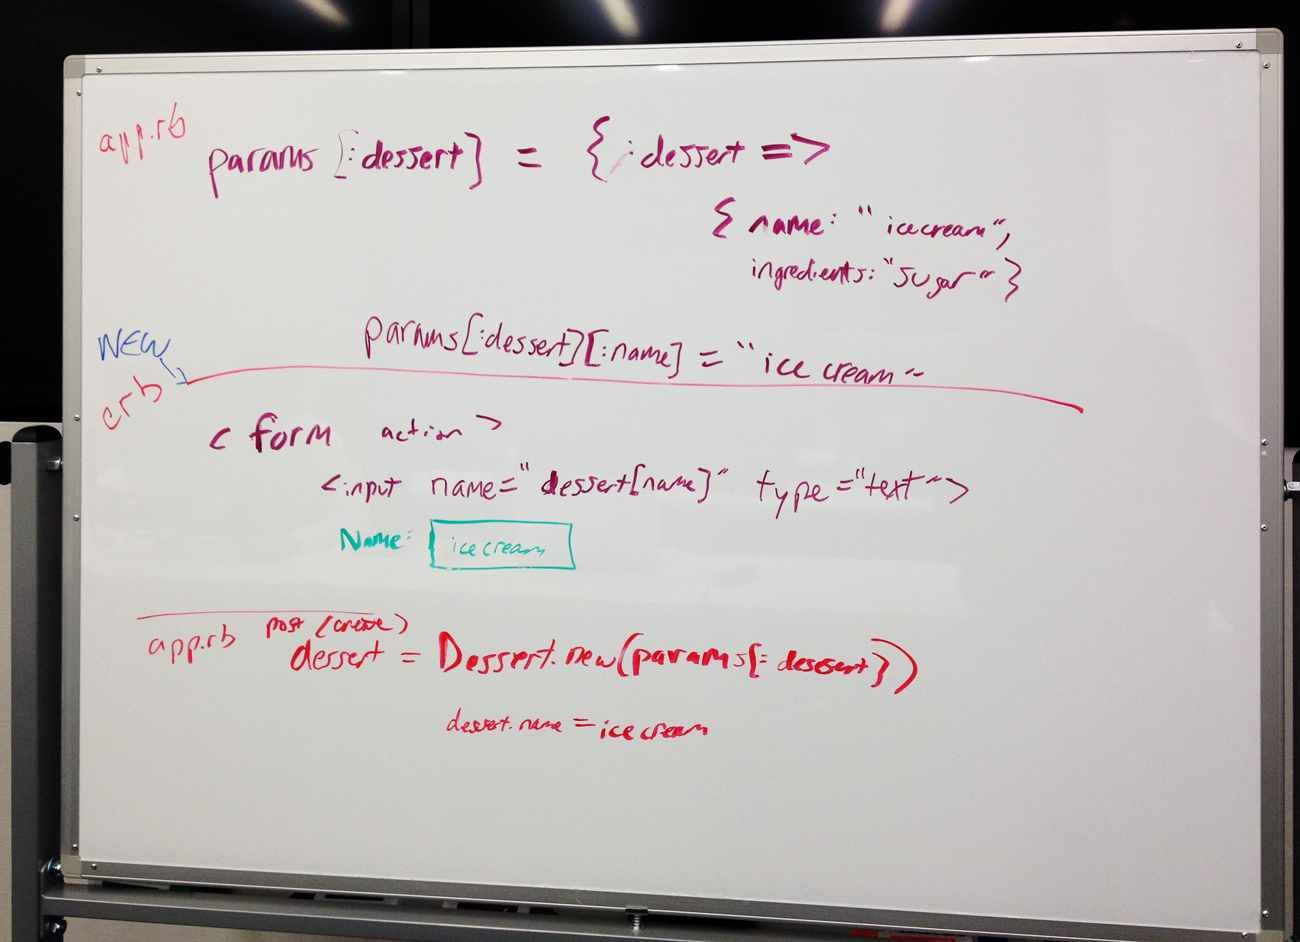 app.rb
params [:dessert] = { :dessert =>
{ name: "icecream",
ingredients: "sugar" }
params[:dessert][:name] = "ice cream"
NEW
erb
< form action >
<input name="dessert[name]" type="text">
Name: icecream
app.rb post (create)
dessert = Dessert.new(params[:dessert])
dessert.name = ice cream